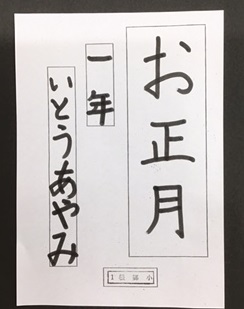 お正月
一年
いとうあやみ